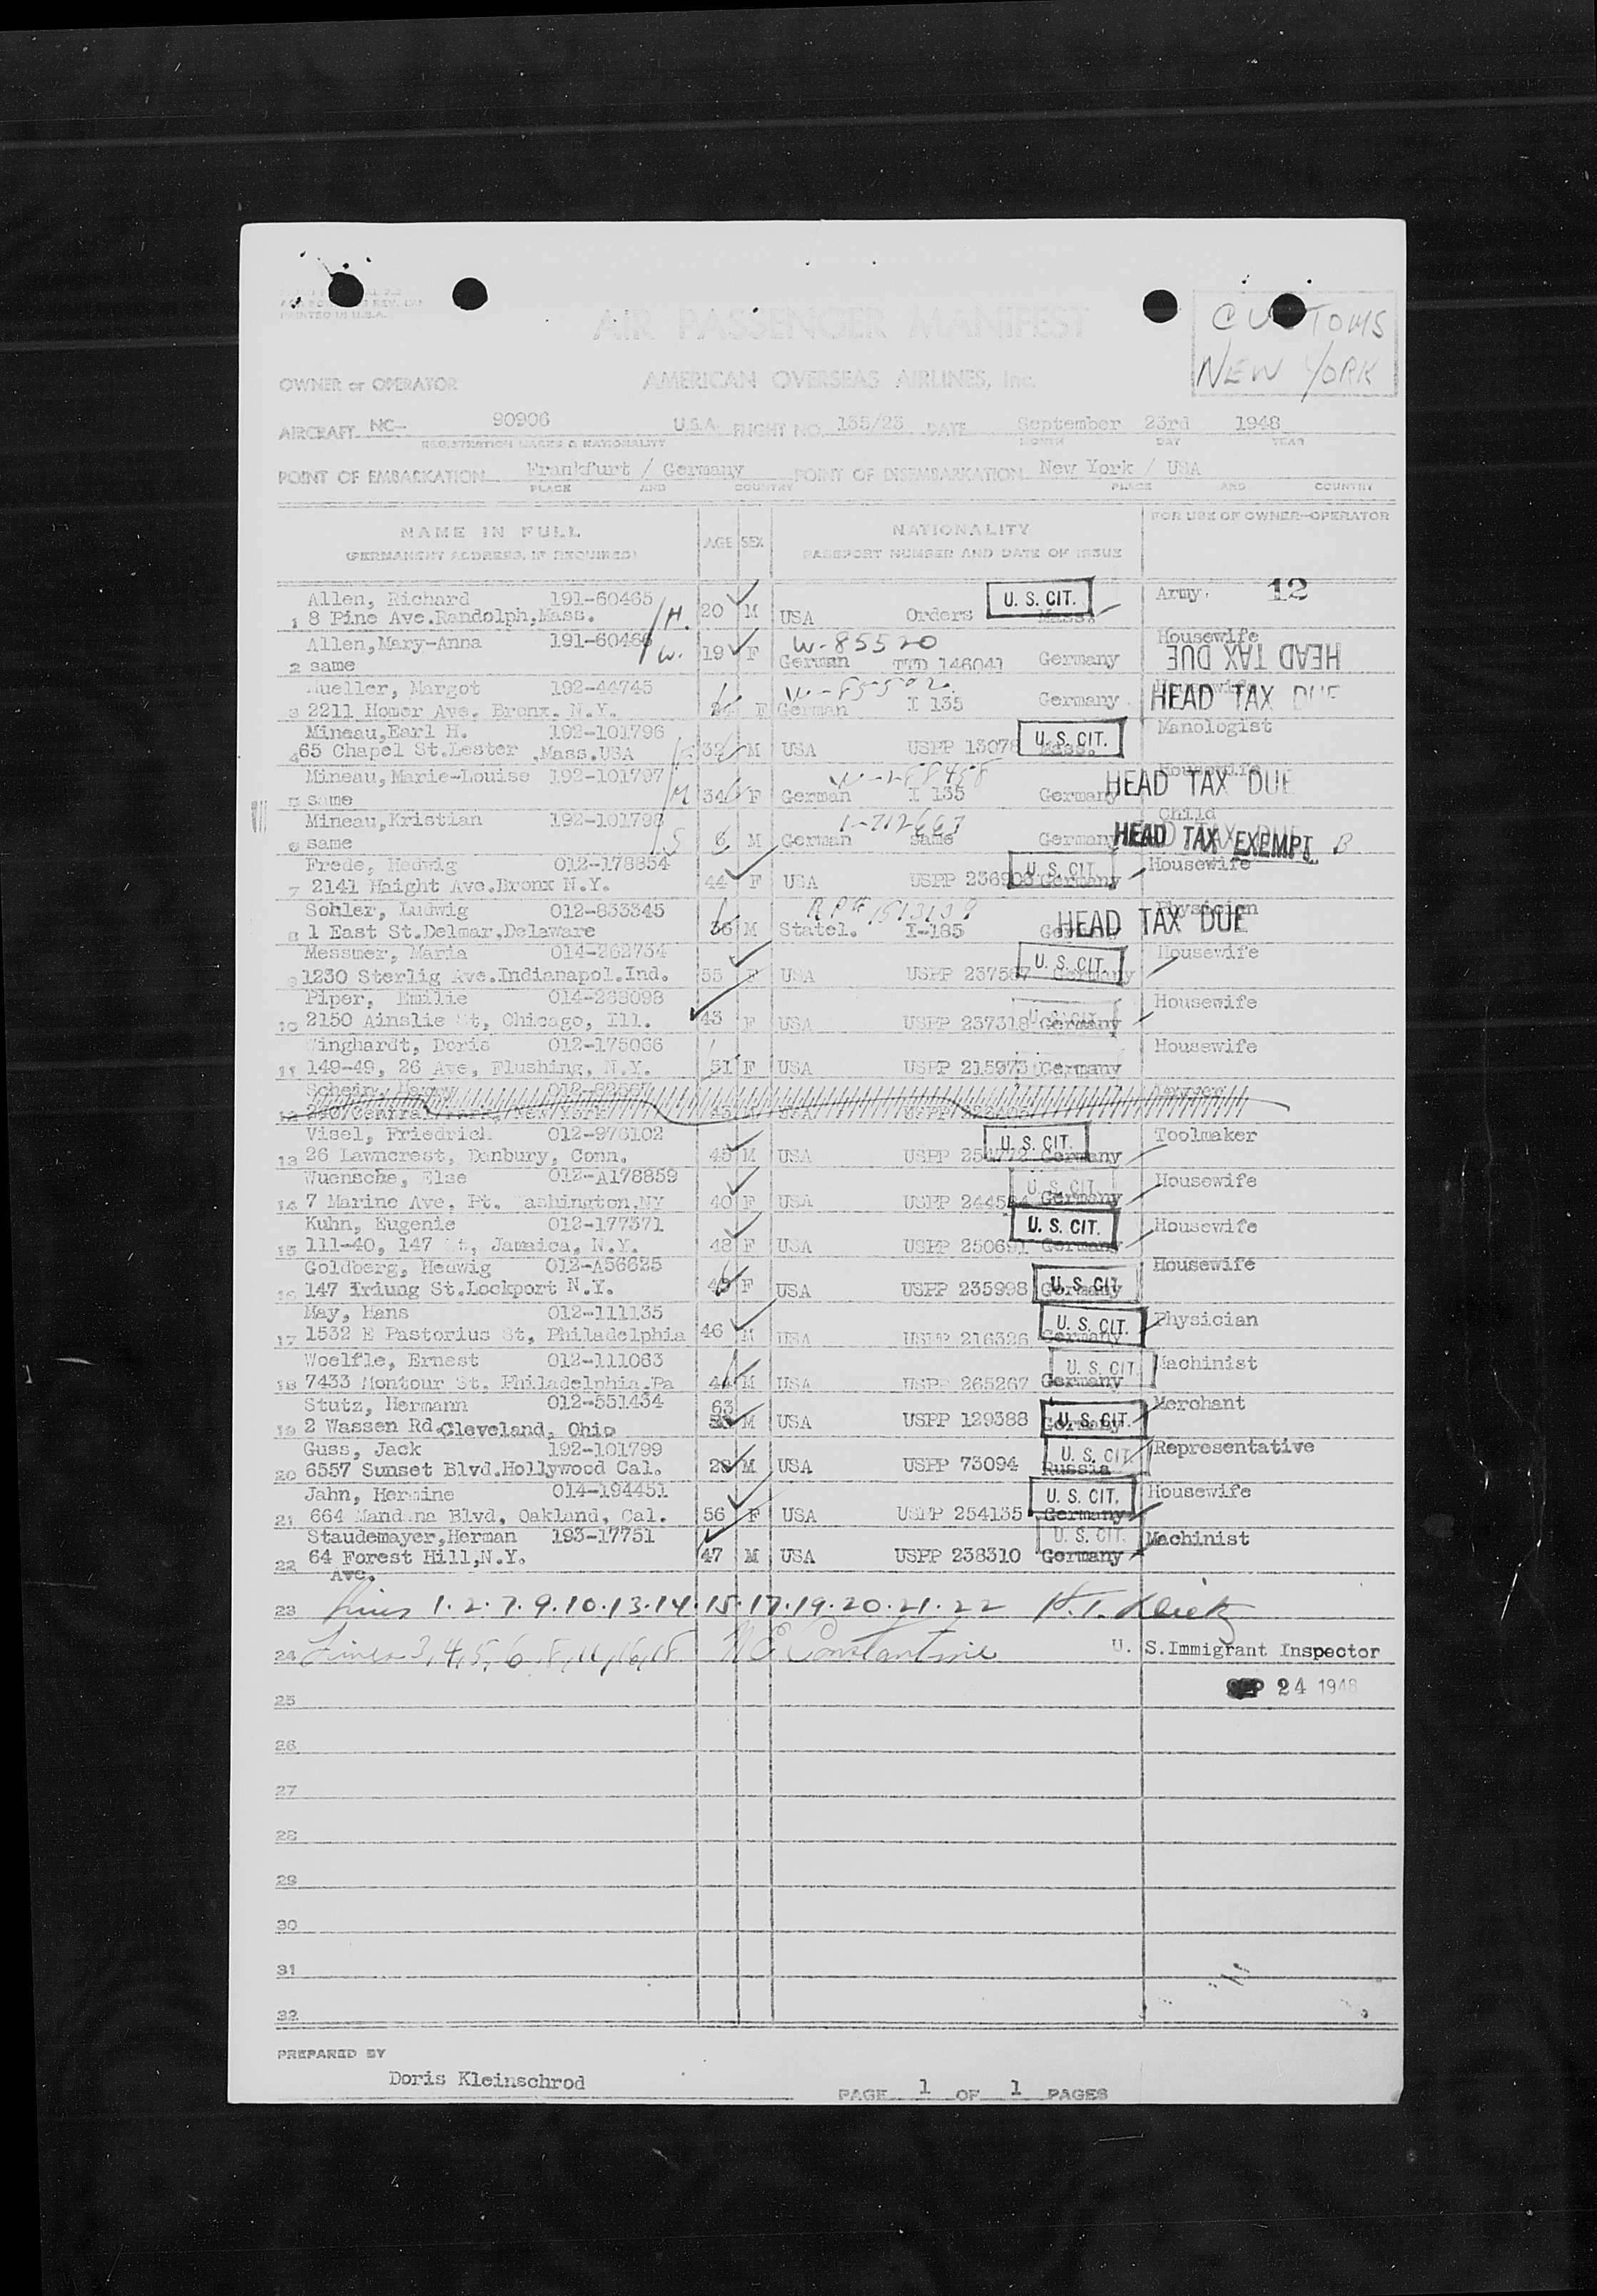 PRINTED IN U.S.A.
AIR PASSENGER MANIFEST
CUSTOMS
NEW YORK
OWNER or OPERATOR AMERICAN OVERSEAS AIRLINES, Inc.
AIRCRAFT NC- 90906 U.S.A. FLIGHT NO. 135/23 DATE September 23rd 1948
REGISTRATION MARKS & NATIONALITY MONTH DAY YEAR
POINT OF EMBARKATION Frankfurt / Germany POINT OF DISEMBARKATION New York / USA
PLACE AND COUNTRY PLACE AND COUNTRY
NAME IN FULL AGE SEX NATIONALITY FOR USE OF OWNER-OPERATOR
(PERMANENT ADDRESS, IF REQUIRED) PASSPORT NUMBER AND DATE OF ISSUE
Allen, Richard 191-60465 U. S. CIT. Army. 12
1 8 Pine Ave.Randolph,Mass. H. 20 M USA Orders Mass.
Allen,Mary-Anna 191-60466 W-85520 Housewife
2 same W. 19 F German TTD 146041 Germany HEAD TAX DUE
Mueller, Margot 192-44745
3 2211 Homer Ave. Bronx, N.Y. F German I 135 Germany HEAD TAX DUE
Mineau,Earl H. 192-101796 U. S. CIT. Manologist
4 65 Chapel St.Lester ,Mass.USA 32 M USA USPP 13078 Mass.
Mineau,Marie-Louise 192-101797 Housewife
5 same M 34 F German I 135 Germany HEAD TAX DUE
Mineau,Kristian 192-101798 Child
6 same S 6 M German same Germany HEAD TAX EXEMPT
Frede, Hedwig 012-178854 U. S. CIT. Housewife
7 2141 Haight Ave.Bronx N.Y. 44 F USA USPP 236906 Germany
Sohler, Ludwig 012-833345 Physician
8 1 East St.Delmar,Delaware 36 M Statel. I-185 Germany HEAD TAX DUE
Messmer, Maria 014-262734 U. S. CIT. Housewife
9 1230 Sterlig Ave.Indianapol.Ind. 55 F USA USPP 237567 Germany
Piper, Emilie 014-268098 U. S. CIT. Housewife
10 2150 Ainslie St, Chicago, Ill. 43 F USA USPP 237318 Germany
Winghardt, Doris 012-175066 Housewife
11 149-49, 26 Ave, Flushing, N.Y. 51 F USA USPP 215973 Germany
12
Visel, Friedrich 012-976102 U. S. CIT. Toolmaker
13 26 Lawncrest, Danbury, Conn. 45 M USA USPP Germany
Wuensche, Else 012-A178859 U. S. CIT. Housewife
14 7 Marine Ave, Pt. ashington,NY 40 F USA USPP Germany
Kuhn, Eugenie 012-177371 U. S. CIT. Housewife
15 111-40, 147 St, Jamaica, N.Y. 48 F USA USPP 250691 Germany
Goldberg, Hedwig 012-A56625 Housewife
16 147 Iriung St.Lockport N.Y. F USA USPP 235998 Germany U. S. CIT.
May, Hans 012-111135 U. S. CIT. Physician
17 1532 E Pastorius St, Philadelphia 46 M USA USPP 216326 Germany
Woelfle, Ernest 012-111063 U. S. CIT. Machinist
18 7433 Montour St, Philadelphia,Pa 44 M USA USPP 265267 Germany
Stutz, Hermann 012-551434 63 Merchant
19 2 Wassen Rd.Cleveland, Ohio M USA USPP 129388 Germany U. S. CIT.
Guss, Jack 192-101799 U. S. CIT. Representative
20 6557 Sunset Blvd.Hollywood Cal. 28 M USA USPP 73094 Russia
Jahn, Hermine 014-194451 U. S. CIT. Housewife
21 664 Mandana Blvd, Oakland, Cal. 56 F USA USPP 254135 Germany
Staudemayer,Herman 193-17751 U. S. CIT. Machinist
22 64 Forest Hill,N.Y. 47 M USA USPP 238310 Germany
Ave.
23 Lines 1.2.7.9.10.13.14.15.17.19.20.21.22
24 Lines 3,4,5,6,8,11,16,18 N E Constantine U. S.Immigrant Inspector
25 SEP 24 1948
26
27
28
29
30
31
32
PREPARED BY
Doris Kleinschrod
PAGE 1 OF 1 PAGES